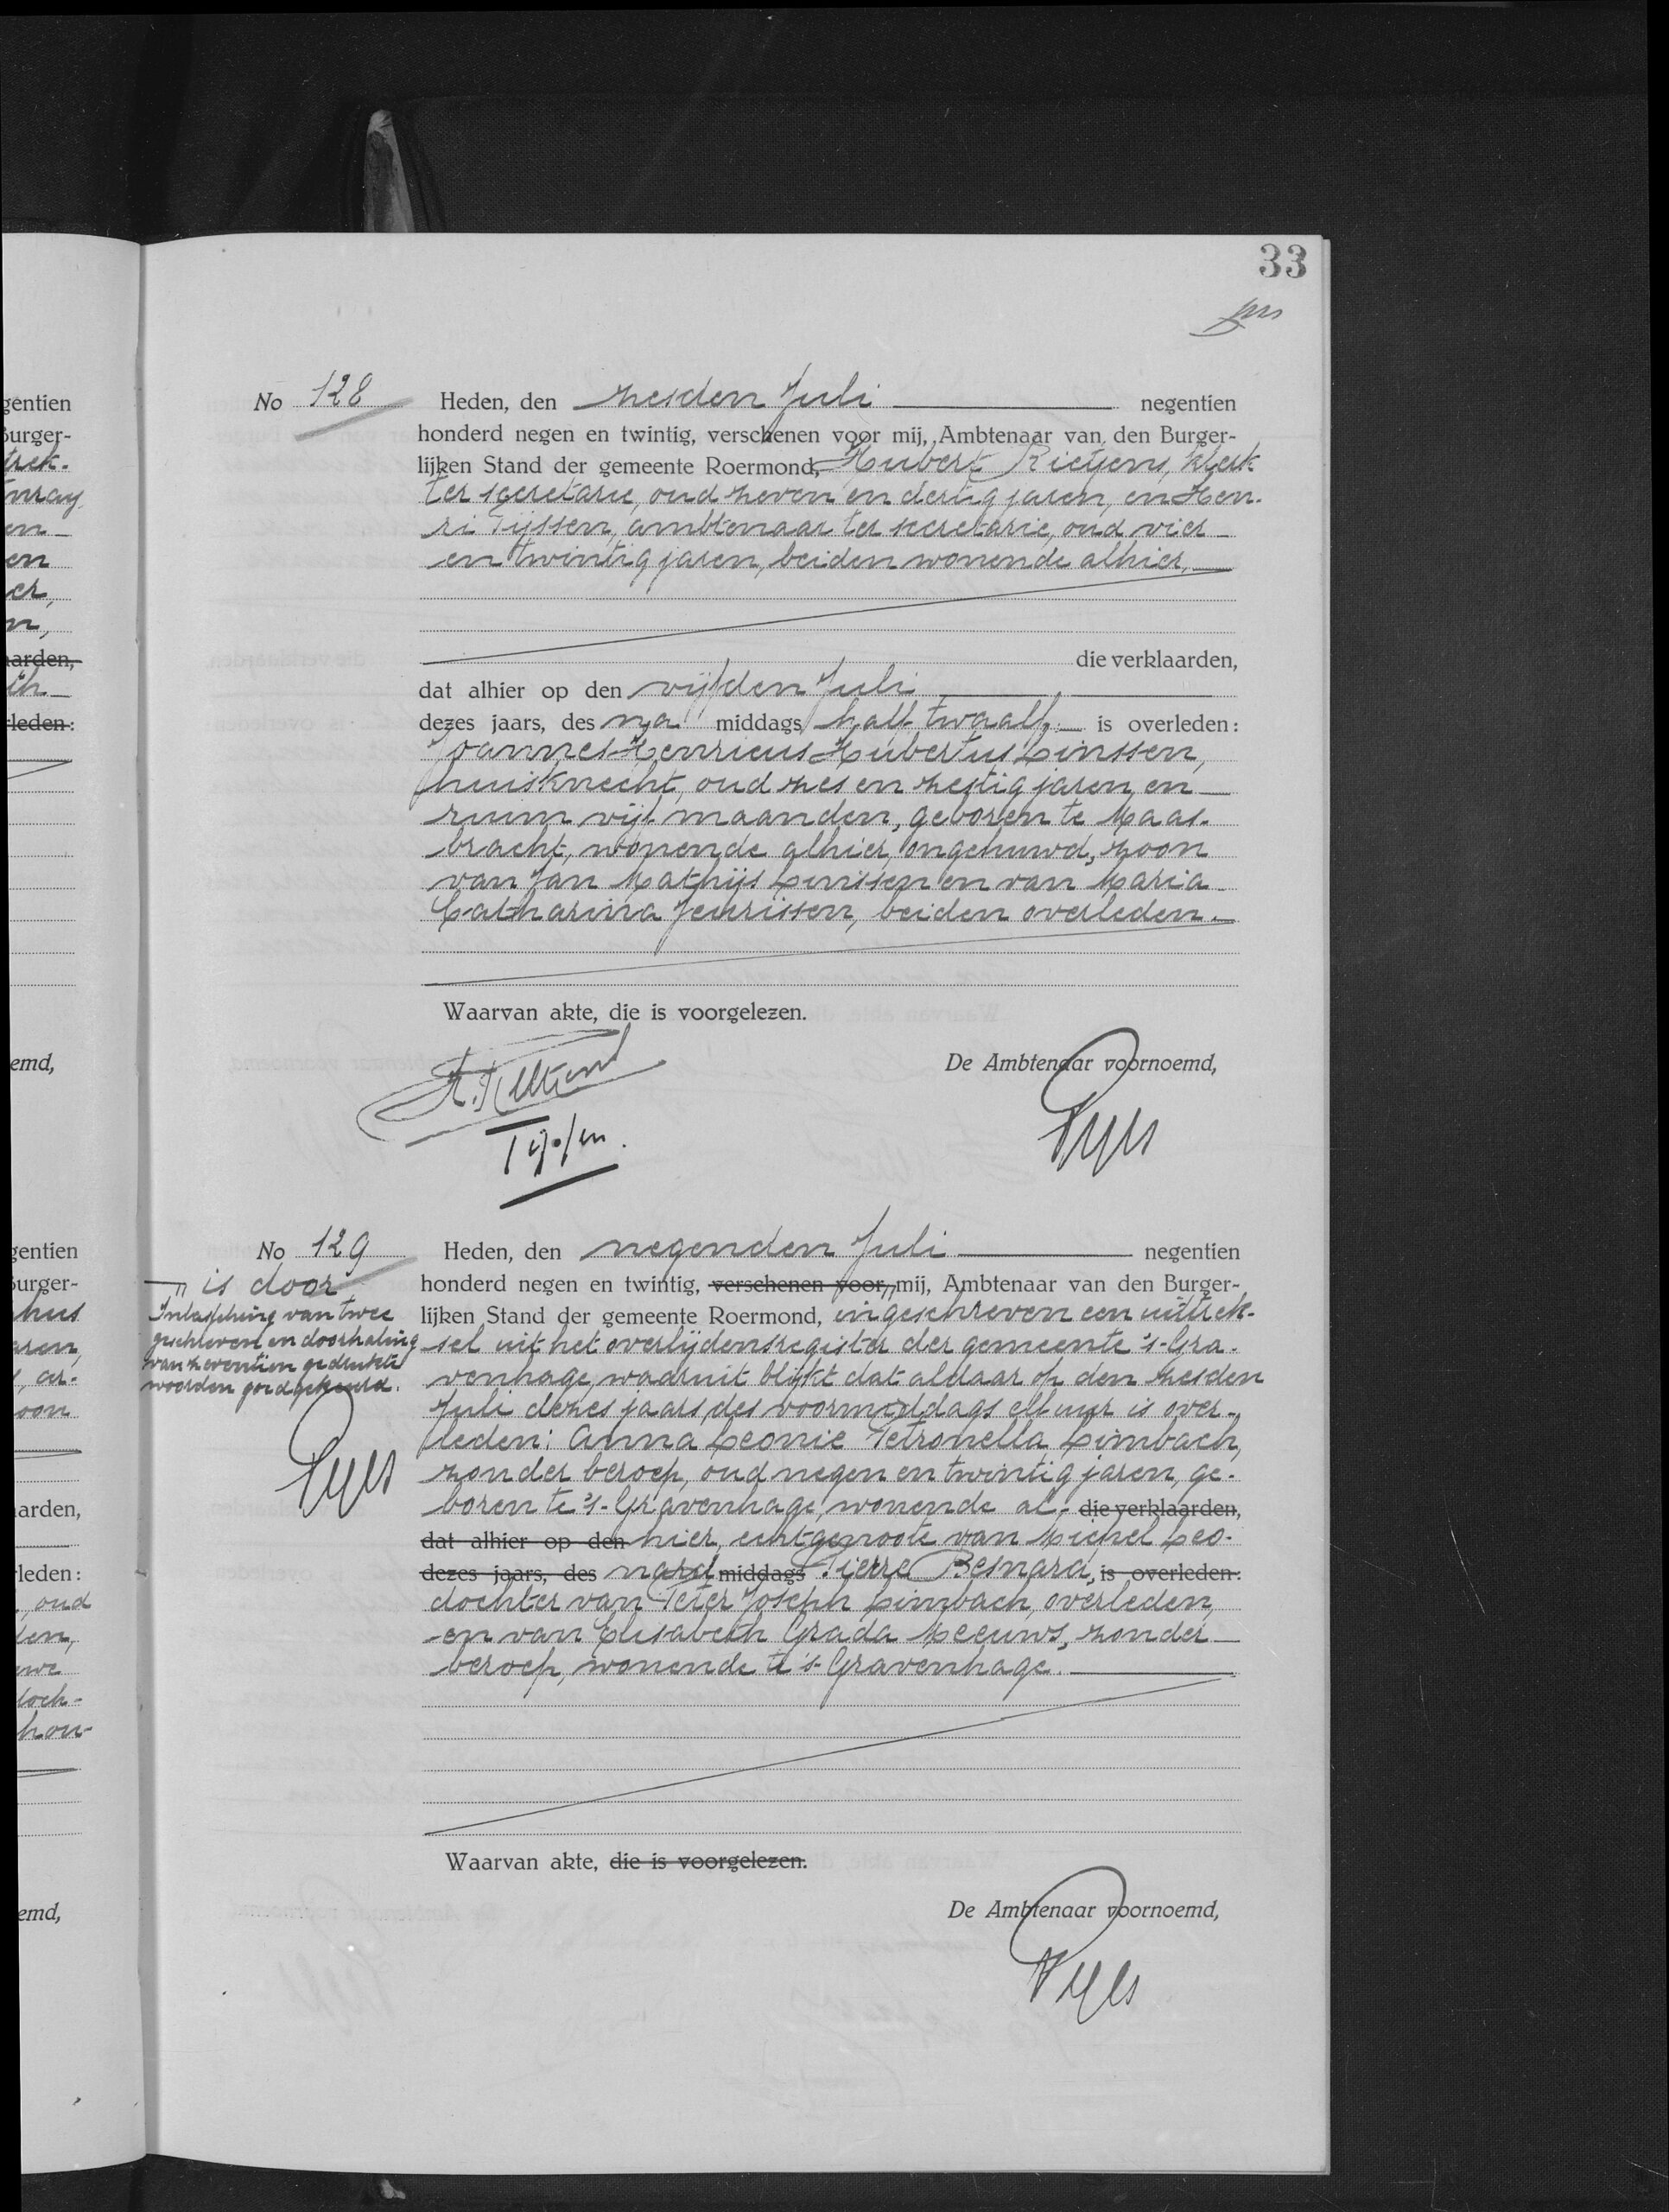 33
No 128 Heden, den zesden Juli negentien
honderd negen en twintig, verschenen voor mij, Ambtenaar van den Burger-
lijken Stand der gemeente Roermond, Hubert Rietjens, klerk
ter secretarie, oud zeven en dertig jaren, en Hen-
ri Tijssen, ambtenaar ter secretarie, oud vier
en twintig jaren, beiden wonende alhier,
die verklaarden,
dat alhier op den vijfden Juli
dezes jaars, des na middags half twaalf is overleden:
Joannes Henricus Hubertus Linssen,
huisknecht, oud zes en zestig jaren, en
ruim vijf maanden, geboren te Maas-
bracht, wonende alhier, ongehuwd, zoon
van Jan Mathijs Linssen en van Maria
Catharina Jeurissen, beiden overleden.
Waarvan akte, die is voorgelezen.
De Ambtenaar voornoemd,
Tijssen.
No 129 Heden, den negenden Juli negentien
honderd negen en twintig, verschenen voor, mij, Ambtenaar van den Burger-
lijken Stand der gemeente Roermond, ingeschreven een uittrek-
sel uit het overlijdensregister der gemeente 's-Gra-
venhage, waaruit blijkt dat aldaar op den zesden
Juli dezes jaars des voormiddags elf uur is over-
leden: Anna Leonie Petronella Limbach,
zonder beroep, oud negen en twintig jaren, ge-
boren te 's-Gravenhage, wonende al- die verklaarden,
dat alhier op den hier, echtgenoote van Michel Leo-
dezes jaars, des nard middags Pierre Besnard, is overleden:
dochter van Peter Joseph Limbach, overleden,
en van Elisabeth Grada Meeuws, zonder
beroep, wonende te 's-Gravenhage.
is door
Inlassching van twee
geschreven en doorhaling
van zeventien gedrukte
woorden goedgekeurd.
Waarvan akte, die is voorgelezen.
De Ambtenaar voornoemd,